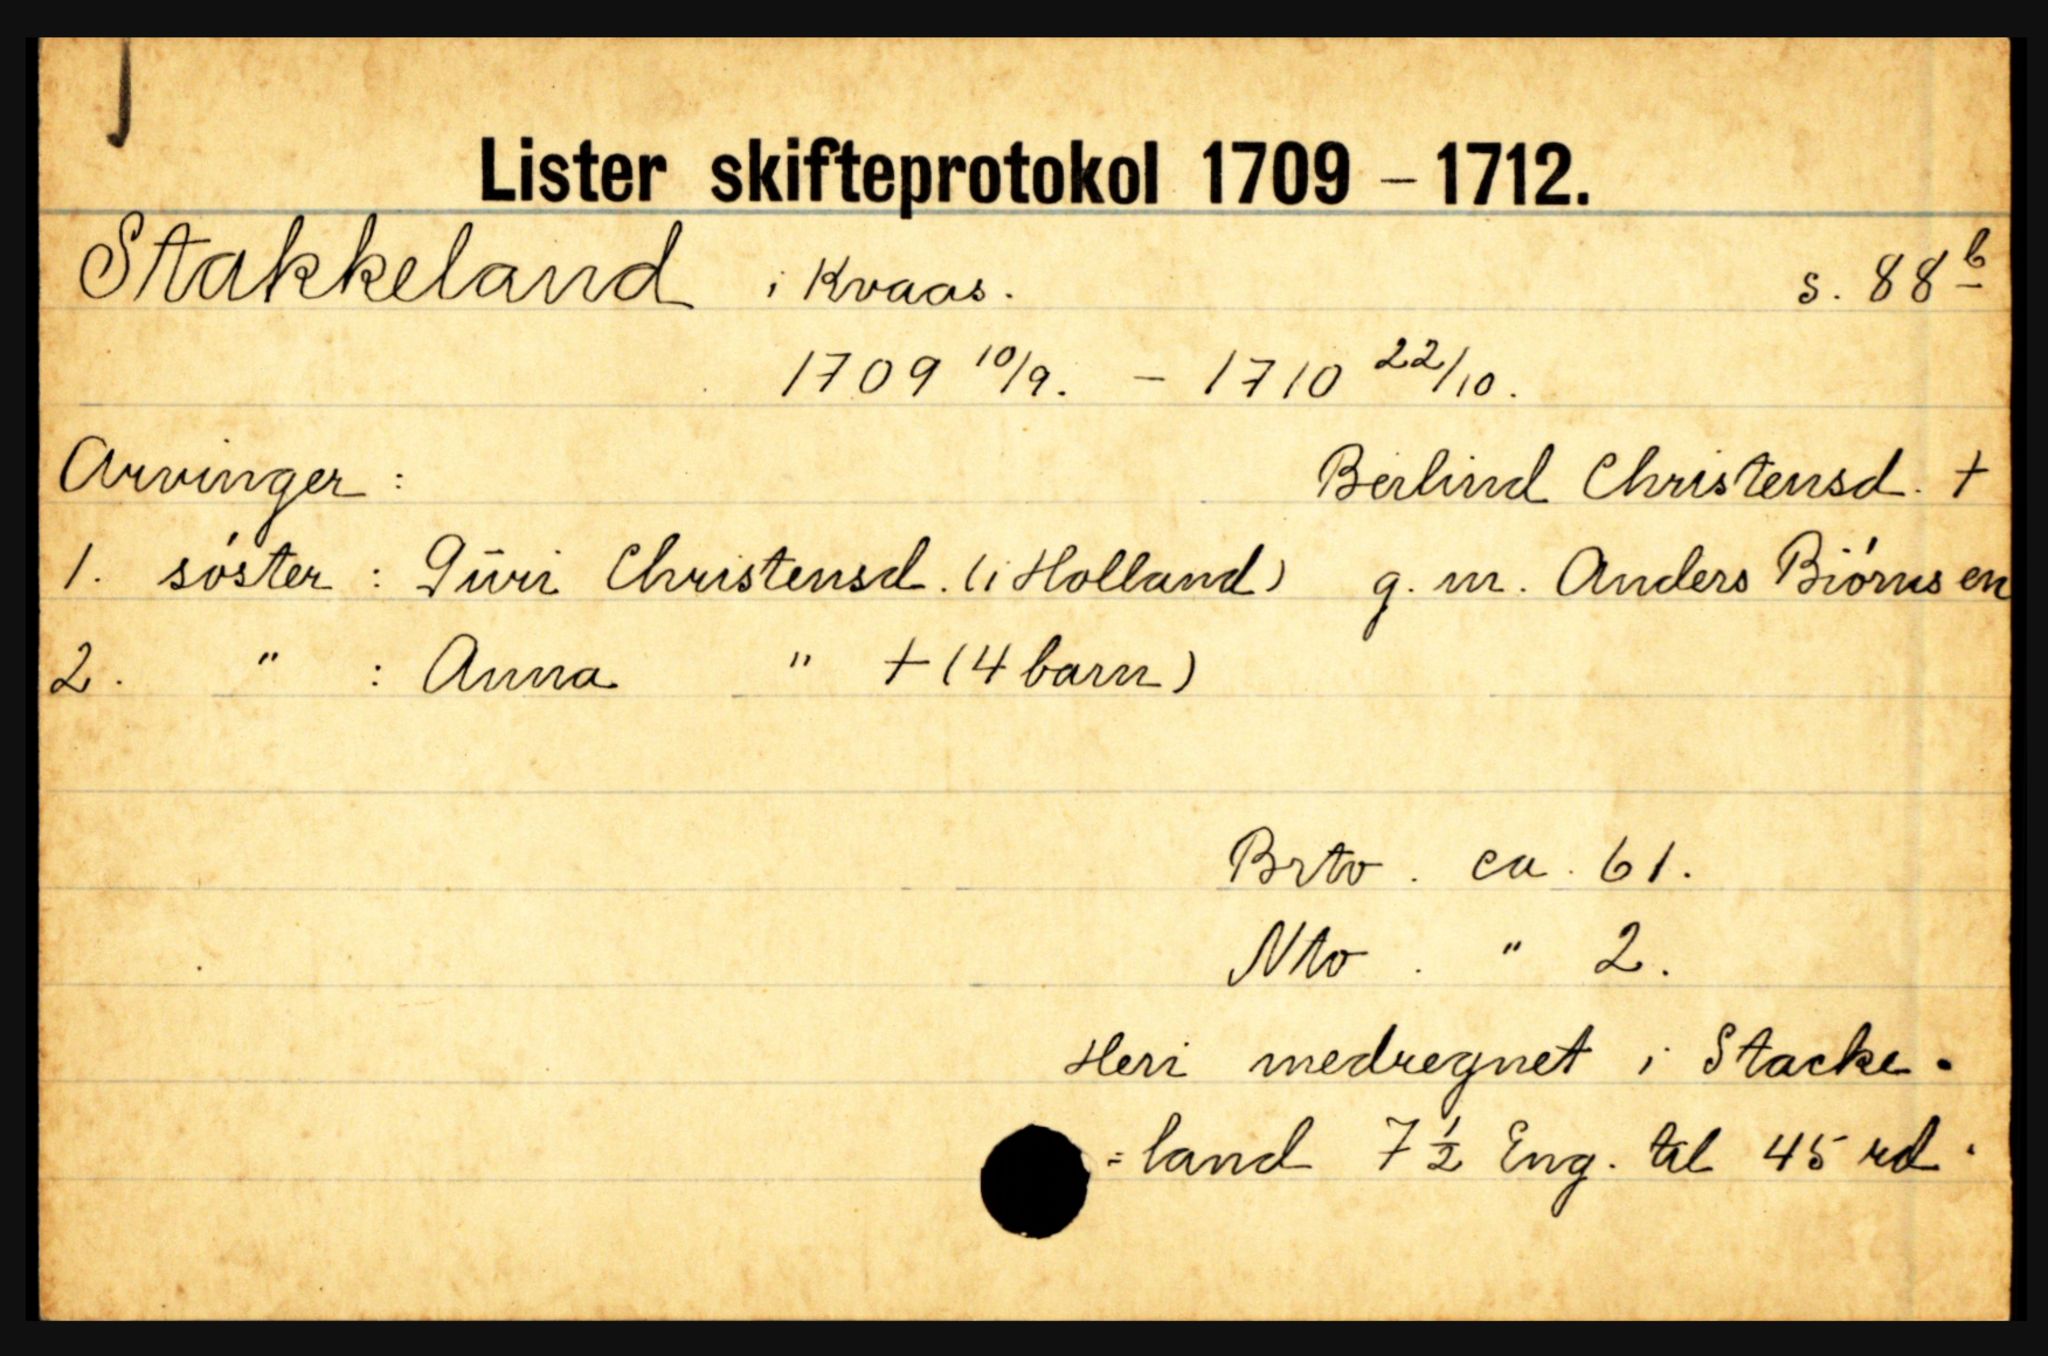 Lister skifteprotokol 1709 – 1712.
Stakkeland i Kvaas. s. 88 b
1709 10/9. – 1710 22/10.
Arvinger : Berlind Christensd. +
1. söster : Gūri Christensd. (i Holland) g. m. Anders Biörnsen
2. " : Anna " + (4 barn)
Brto . ca. 61.
Nto . " 2.
Heri medregnet i Stacke-
=land 7 ½ Eng. til 45 rd.